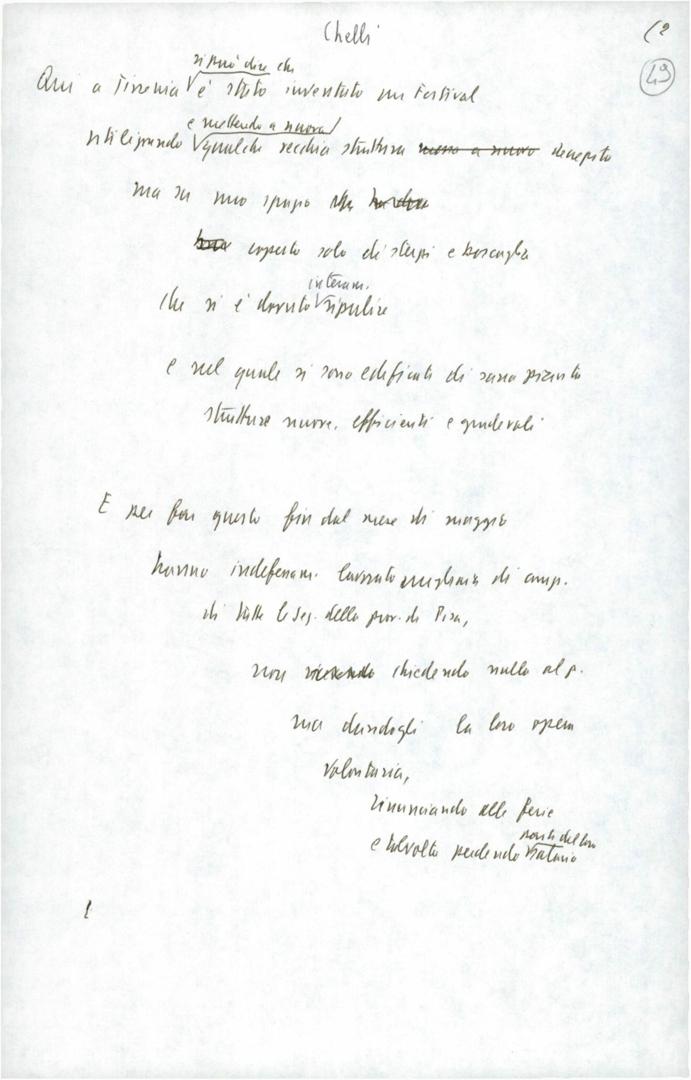 Chelli
49
si può dire che
Qui a Tirrenia è stato inventato un Festival
e mettendo a nuovo
utilizzando qualche vecchia struttura messo a nuovo decrepita
ma su uno spazio
coperto solo di sterpi e boscaglia
interam.
che si è dovuto ripulire
e nel quale si sono edificati di sana pianta
strutture nuove, efficienti e gradevoli
E per far questo fin dal mese di maggio
hanno indefessam. lavorato migliaia di comp.
di tutte le Sez. della prov. di Pisa,
non chiedendo nulla al p.
ma dandogli la loro opera
volontaria,
rinunciando alle ferie
parte del loro
e talvolta perdendo salario